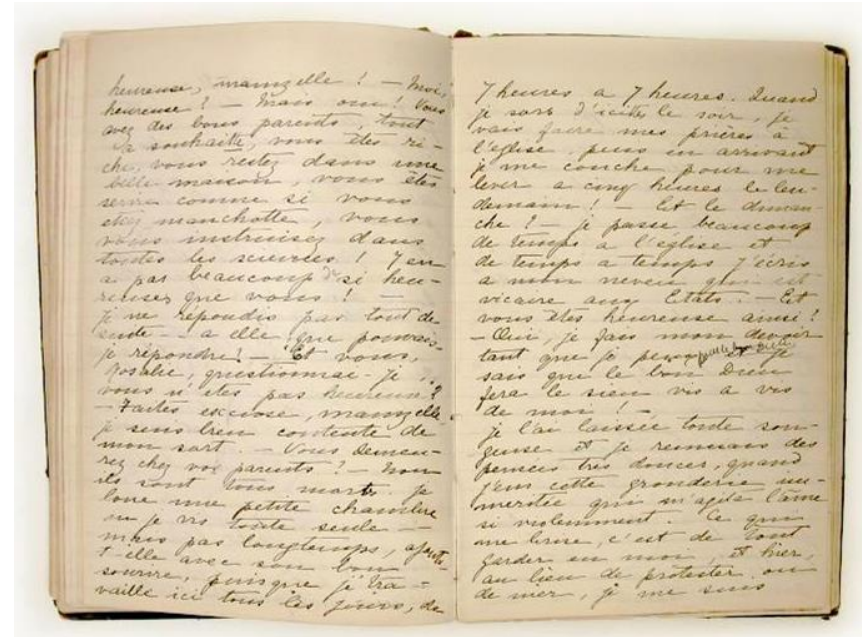 heureuse, mamzelle ! — Moi,
heureuse ? — Mais oui ! Vous
avez des bons parents, tout
à souhaite, vous êtes ri-
che, vous restez dans une
belle maison, vous êtes
servie comme si vous
étiez manchotte, vous
vous instruisez dans
toutes les sciences ! Y en
a pas beaucoup de si heu-
reuses que vous ! —
je ne répondis pas tout de
suite — à elle que pouvais-
je répondre ! — Et vous,
Rosalie, questionnai-je ..
vous n'êtes pas heureuse ?
— Faites excuse, mamzelle,
je sens bien contente de
mon sort. — Vous demeu-
rez chez vos parents ? — Non
ils sont tous morts. Je
loue une petite chambre
où je vis toute seule —
mais pas longtemps, ajouta-
t-elle avec son bon
sourire, puisque je tra-
vaille ici tous les jours, de
7 heures à 7 heures. Quand
je sors d'icite le soir, je
vais faire mes prières à
l'église puis en arrivant
je me couche pour me
lever à cinq heures le len-
demain ! — Et le diman-
che ? — je passe beaucoup
de temps à l'église et
de temps à temps j'écris
à mon neveu qui est
vicaire aux Etats. — Et
vous êtes heureuse ainsi ?
— Oui, je fais mon devoir
tant que je peux pour le bon Dieu et je
sais que le bon Dieu
fera le sien vis à vis
de moi ! —
je l'ai laissée toute son-
geuse et je remuais des
pensées très douces, quand
j'eus cette gronderie im-
méritée qui m'agita l'âme
si violemment. Ce qui
me brise, c'est de tout
garder en moi, et hier,
au lieu de protester ou
de nier, je me suis